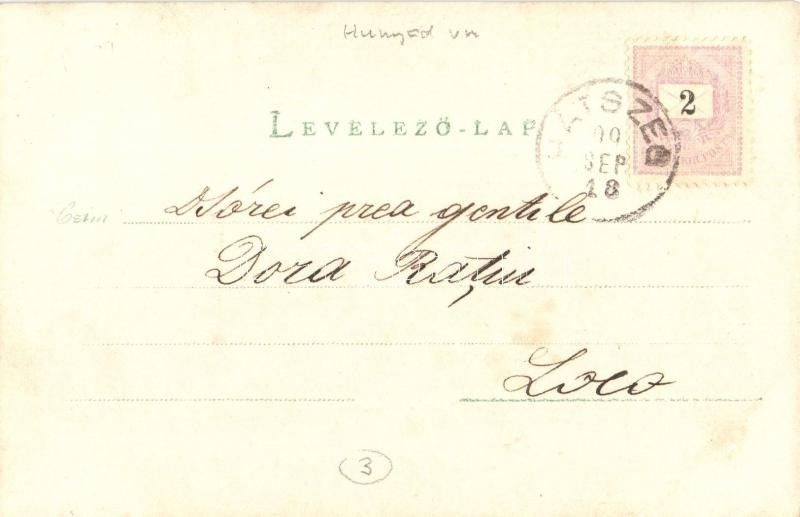 Hunyad vm
LEVELEZŐ-LAP
2
HÁTSZEG
00
SEP
18
prea gentile
Dora Rațiu
Loco
3